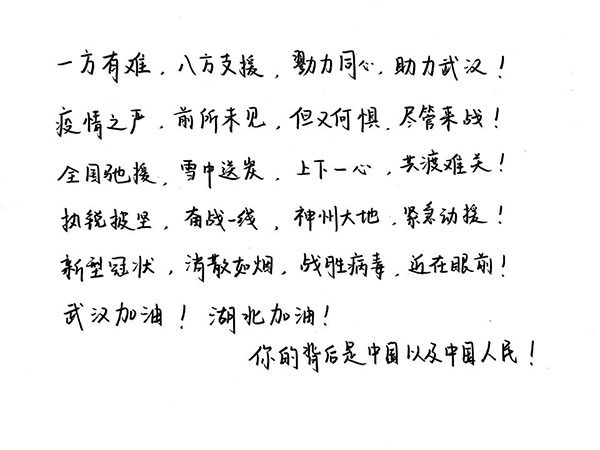 一方有难，八方支援，勠力同心，助力武汉！
疫情之严，前所未见，但又何惧，尽管来战！
全国驰援，雪中送炭，上下一心，共渡难关！
执锐披坚，奋战一线，神州大地，紧急动援！
新型冠状，消散如烟，战胜病毒，近在眼前！
武汉加油！湖北加油！
你的背后是中国以及中国人民！